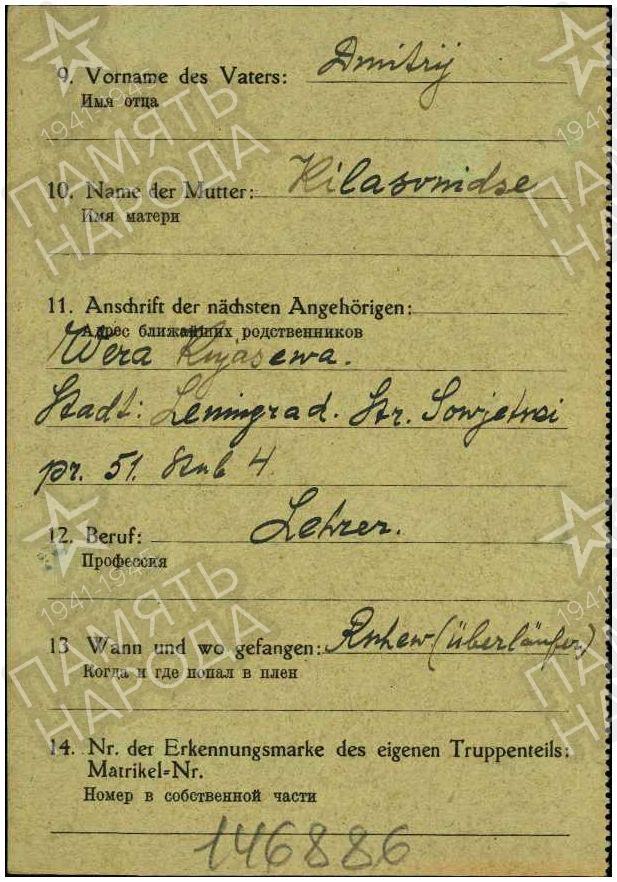 9. Vorname des Vaters: Dmitrij
Имя отца
10. Name der Mutter: Kilasonidse
Имя матери
11. Anschrift der nächsten Angehörigen:
Адрес ближайших родственников
Wera
Stadt: Leningrad. Str. Sowjetnoi
pr. 51. Stub 4
12. Beruf: Lehrer.
Профессия
13 Wann und wo gefangen: Rshew (überläufer)
Когда и где попал в плен
14. Nr. der Erkennungsmarke des eigenen Truppenteils:
Matrikel-Nr.
Номер в собственной части
146886
1941 1945
ПАМЯТЬ
НАРОДА